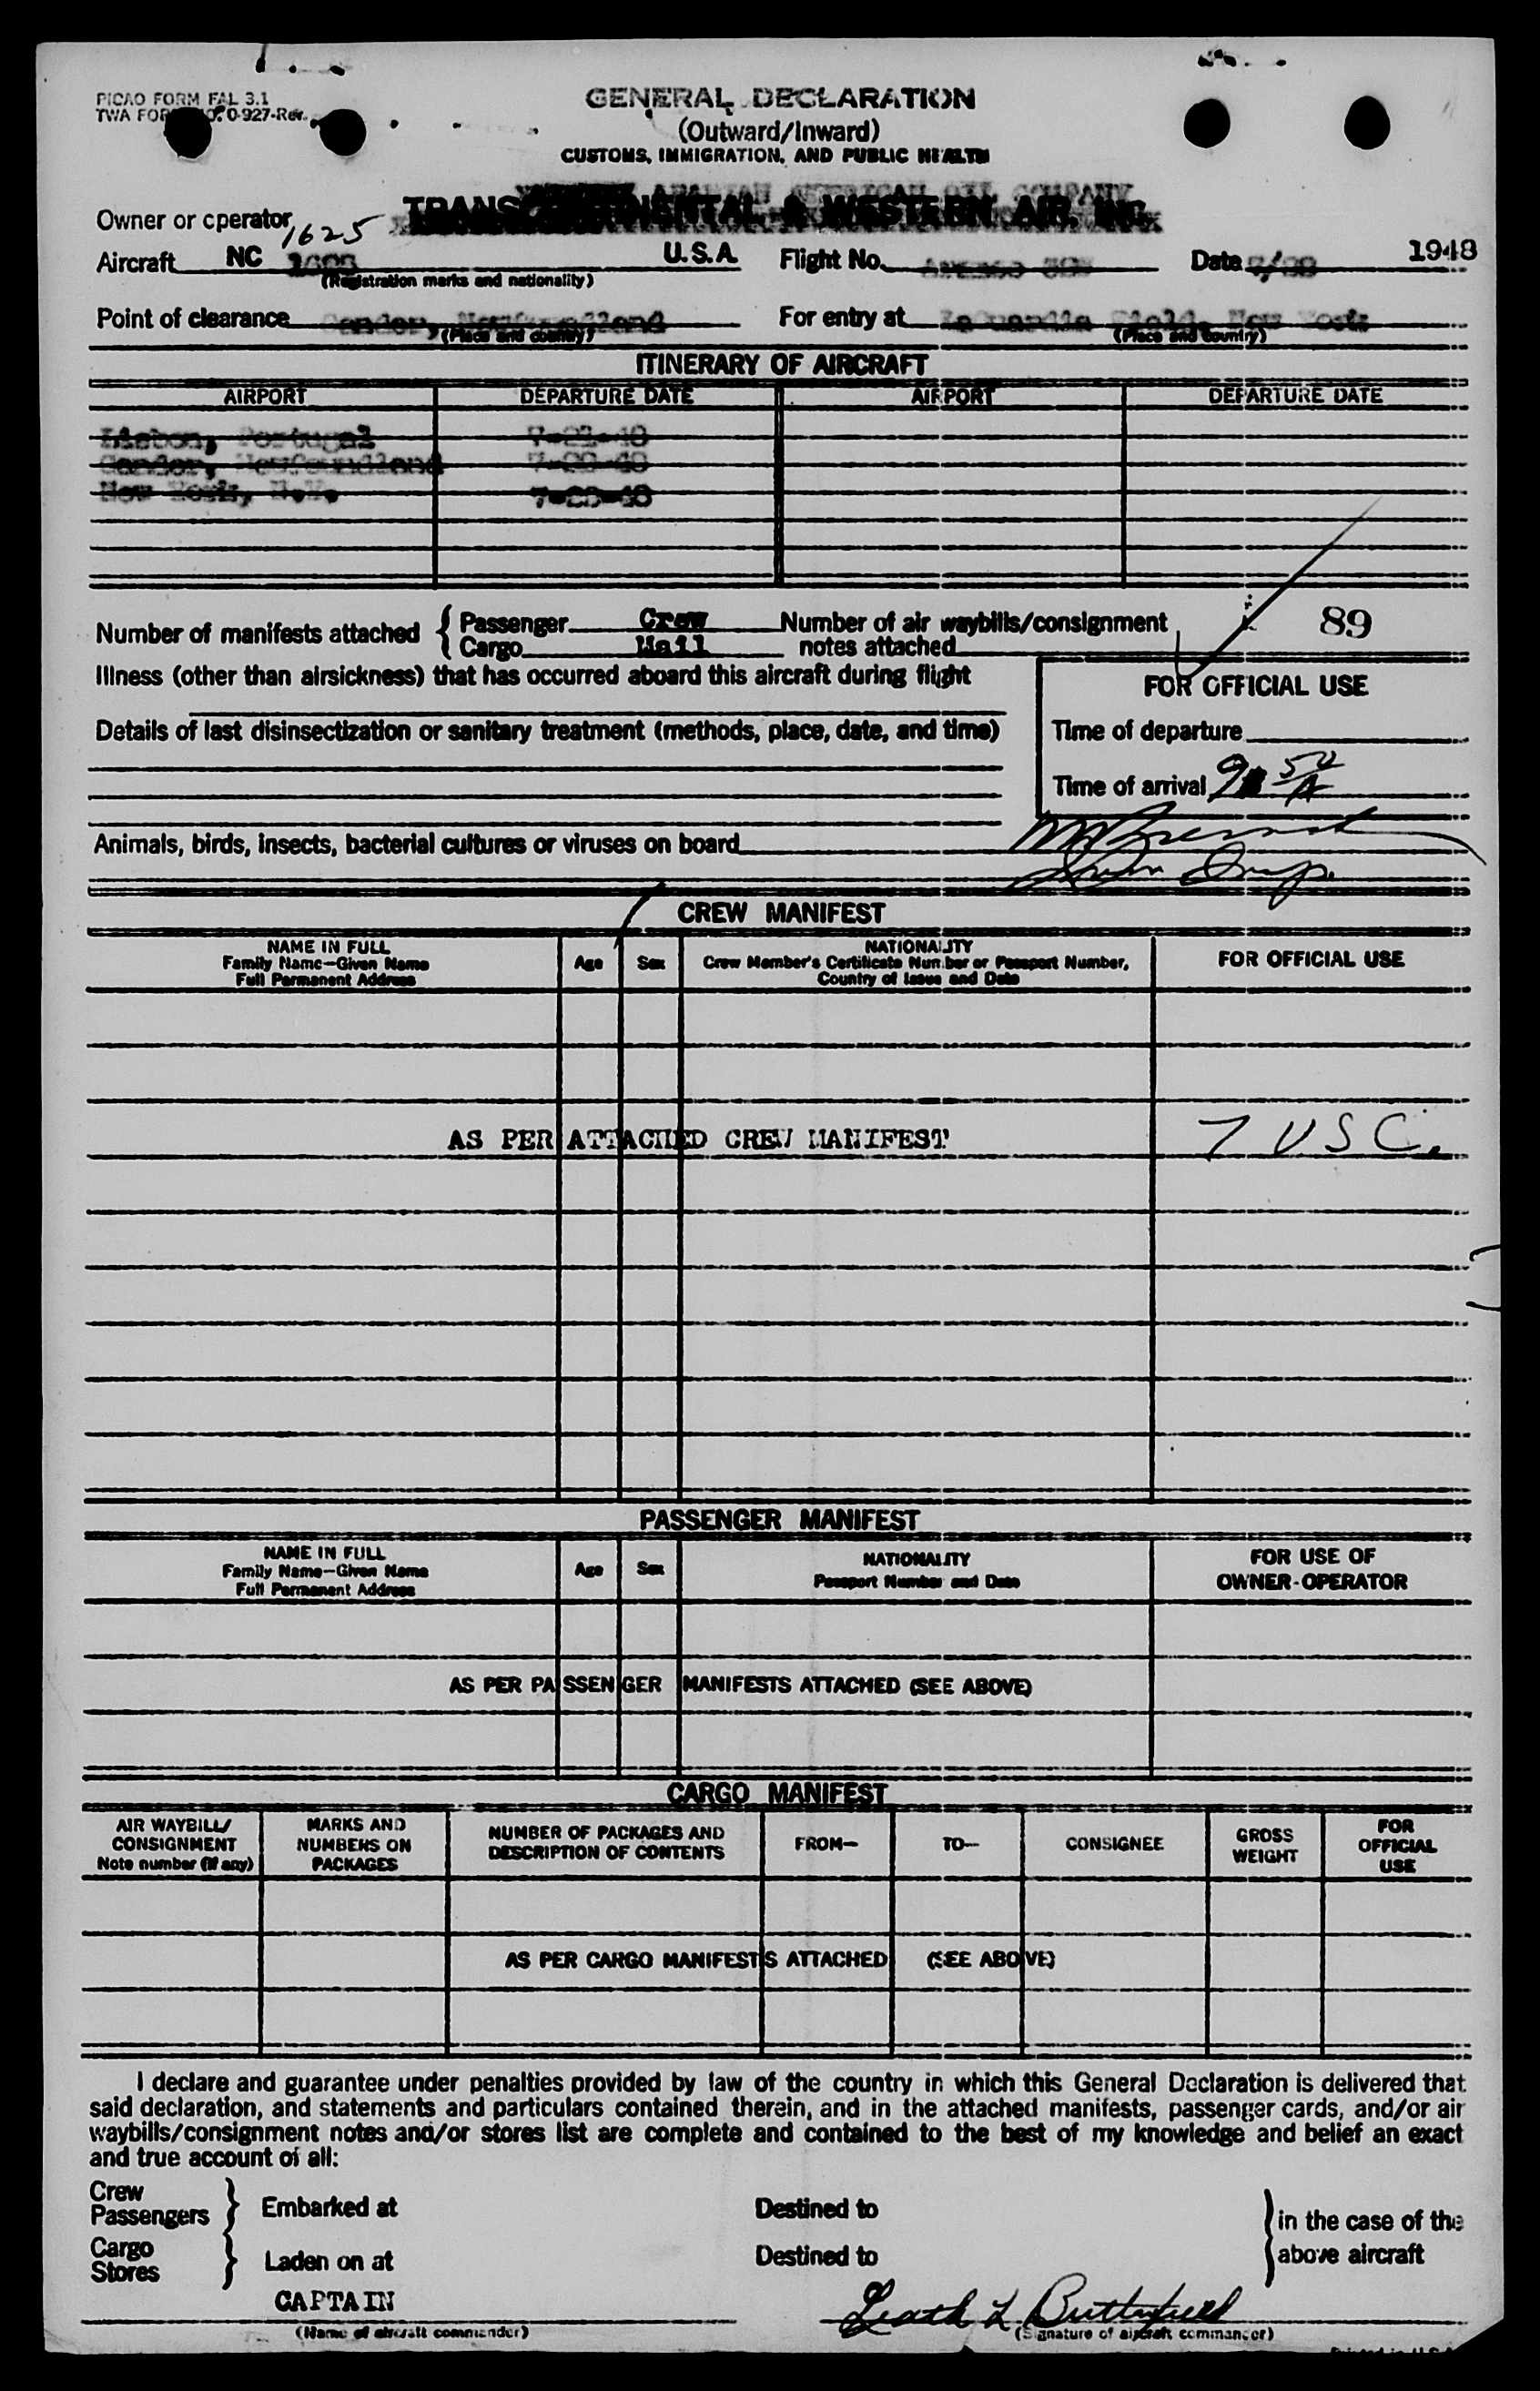 PICAO FORM FAL 3.1
TWA FORM NO. 0-927-Rev.
GENERAL DECLARATION
(Outward/Inward)
CUSTOMS, IMMIGRATION, AND PUBLIC HEALTH
ARABIAN AMERICAN OIL COMPANY
TRANSCONTINENTAL & WESTERN AIR, INC.
Owner or operator
1625
Aircraft NC U.S.A. Flight No. Date 1948
(Registration marks and nationality)
Point of clearance Gander, Newfoundland For entry at LaGuardia Field, New York
(Place and country) (Place and country)
ITINERARY OF AIRCRAFT
AIRPORT DEPARTURE DATE AIRPORT DEPARTURE DATE
Lisbon, Portugal
Gander, Newfoundland
New York, N.Y.
Number of manifests attached { Passenger Crew Number of air waybills/consignment 89
Cargo Mail notes attached
Illness (other than airsickness) that has occurred aboard this aircraft during flight
FOR OFFICIAL USE
Details of last disinsectization or sanitary treatment (methods, place, date, and time)
Time of departure
Time of arrival 9 50 A
Animals, birds, insects, bacterial cultures or viruses on board
CREW MANIFEST
NAME IN FULL
Family Name—Given Name
Full Permanent Address
Age Sex
NATIONALITY
Crew Member's Certificate Number or Passport Number,
Country of Issue and Date
FOR OFFICIAL USE
AS PER ATTACHED CREW MANIFEST 7 USC.
PASSENGER MANIFEST
NAME IN FULL
Family Name—Given Name
Full Permanent Address
Age Sex
NATIONALITY
Passport Number and Date
FOR USE OF
OWNER-OPERATOR
AS PER PASSENGER MANIFESTS ATTACHED (SEE ABOVE)
CARGO MANIFEST
AIR WAYBILL/
CONSIGNMENT
Note number (if any)
MARKS AND
NUMBERS ON
PACKAGES
NUMBER OF PACKAGES AND
DESCRIPTION OF CONTENTS
FROM—
TO—
CONSIGNEE
GROSS
WEIGHT
FOR
OFFICIAL
USE
AS PER CARGO MANIFESTS ATTACHED (SEE ABOVE)
I declare and guarantee under penalties provided by law of the country in which this General Declaration is delivered that
said declaration, and statements and particulars contained therein, and in the attached manifests, passenger cards, and/or air
waybills/consignment notes and/or stores list are complete and contained to the best of my knowledge and belief an exact
and true account of all:
Crew
Passengers } Embarked at Destined to } in the case of the
Cargo
Stores } Laden on at Destined to above aircraft
CAPTAIN Leath L Butterfield
(Name of aircraft commander) (Signature of aircraft commander)